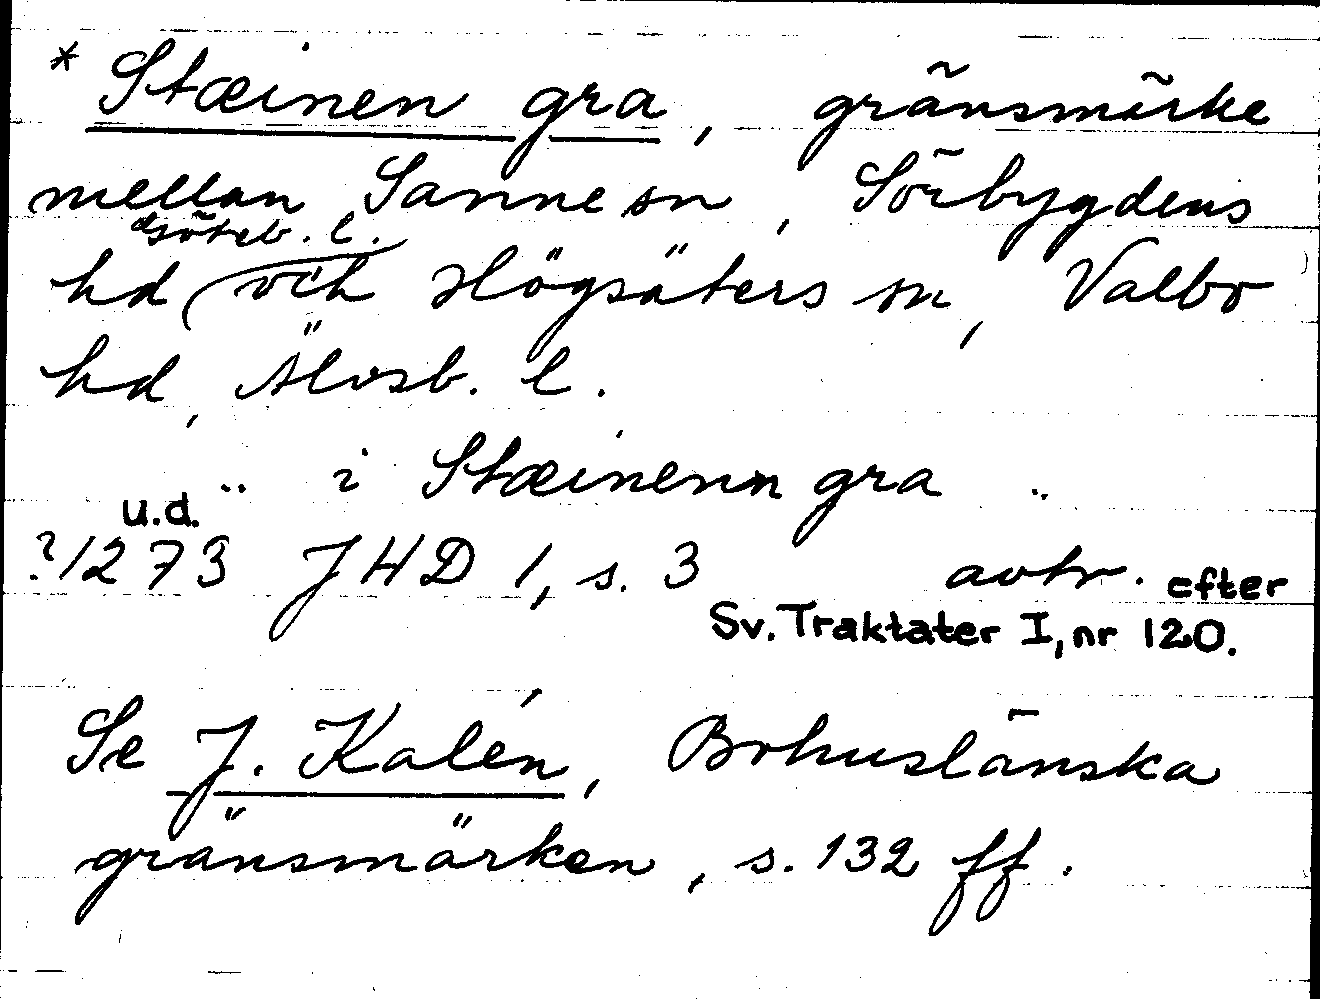 * Stæinen gra, gränsmärke
mellan Sanne sn, Sörbygdens
Göteb. l.
hd och Högsäters sn, Valbo
hd, Älvsb. l.
" i Stæinenn gra "
u.d.
?1273 JHD 1, s. 3 avtr. efter
Sv. Traktater I, nr 120.
Se J. Kalén, Bohuslänska
gränsmärken, s. 132 ff.